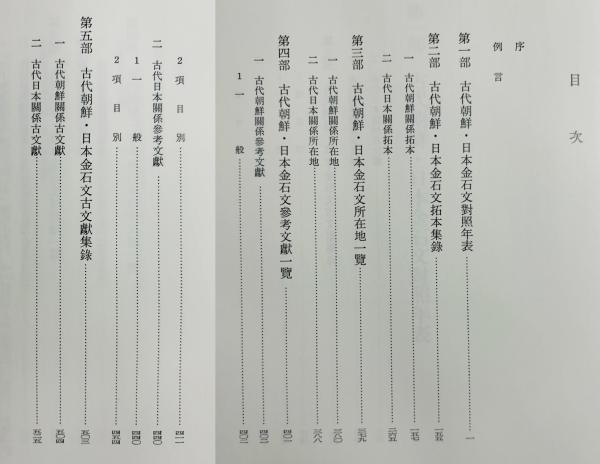 目次
序
例言
第一部 古代朝鮮・日本金石文對照年表……一
第二部 古代朝鮮・日本金石文拓本集錄……
一 古代朝鮮關係拓本……
二 古代日本關係拓本……
第三部 古代朝鮮・日本金石文所在地一覽……三七九
一 古代朝鮮關係所在地……三八〇
二 古代日本關係所在地……三八八
第四部 古代朝鮮・日本金石文參考文獻一覽……四〇一
一 古代朝鮮關係參考文獻……四〇二
1 一般……四〇二
2 項目別……四一一
二 古代日本關係參考文獻……四四〇
1 一般……四四〇
2 項目別……四五四
第五部 古代朝鮮・日本金石文古文獻集錄……五〇三
一 古代朝鮮關係古文獻……五〇四
二 古代日本關係古文獻……五二五